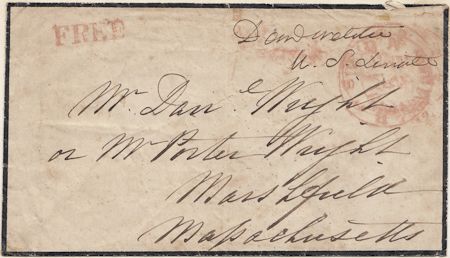 FREE
Danl Webster
U. S. Senate
Mr. Danl Wright
or Mr Porter Wright
Marshfield
Massachusetts